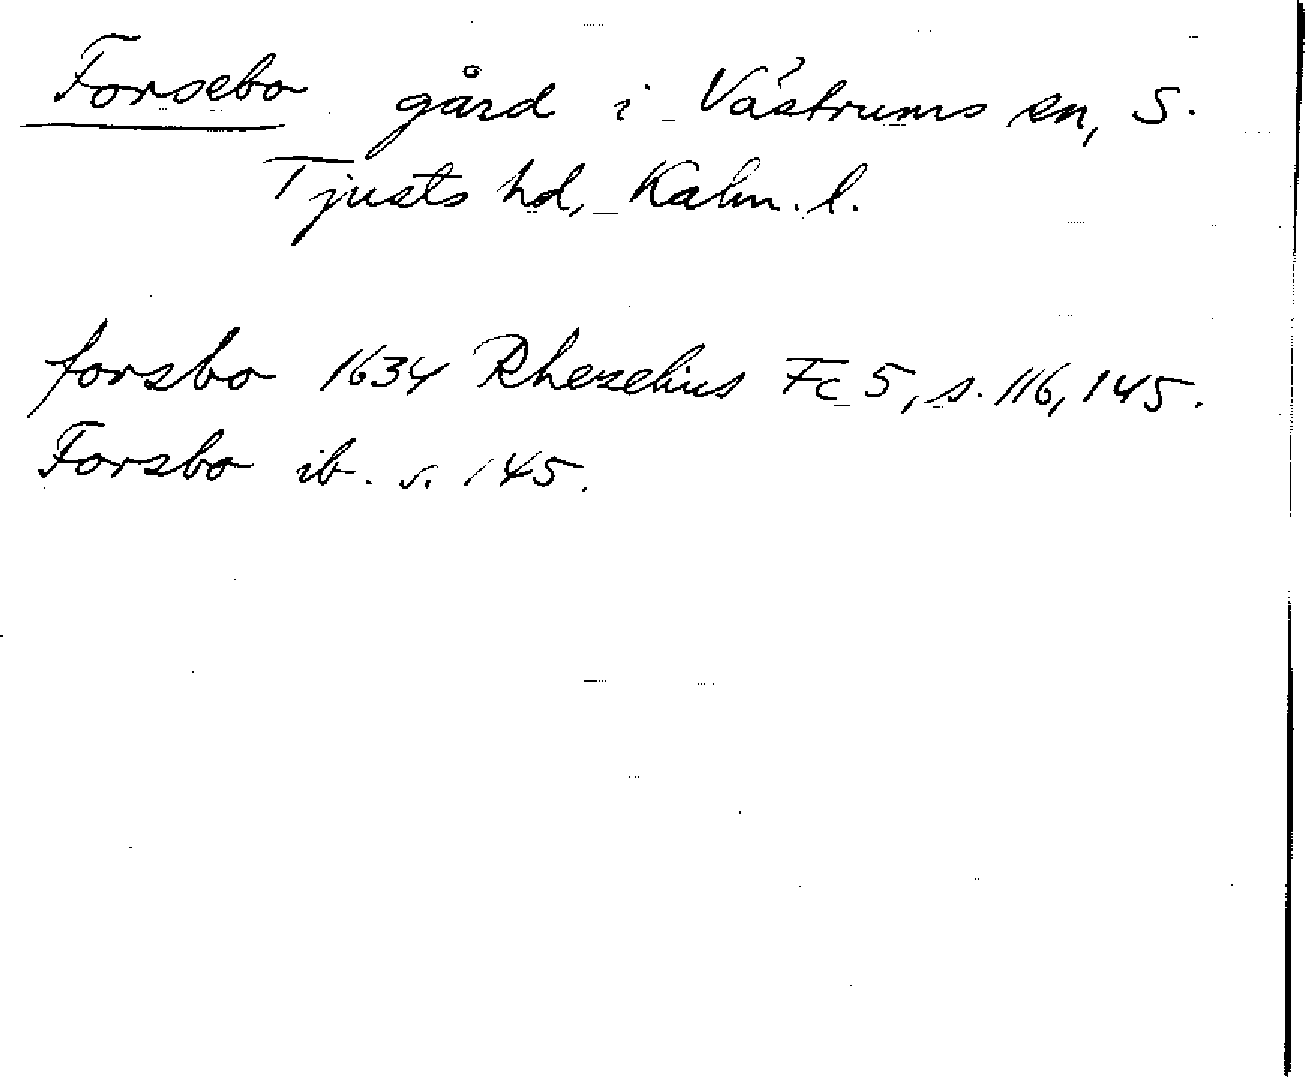 Forsebo gård i Västrums sn, S.
Tjusts hd, Kalm. l.
forsbo 1634 Rhezelius Fc 5, s. 116, 145.
Forsbo ib. s. 145.